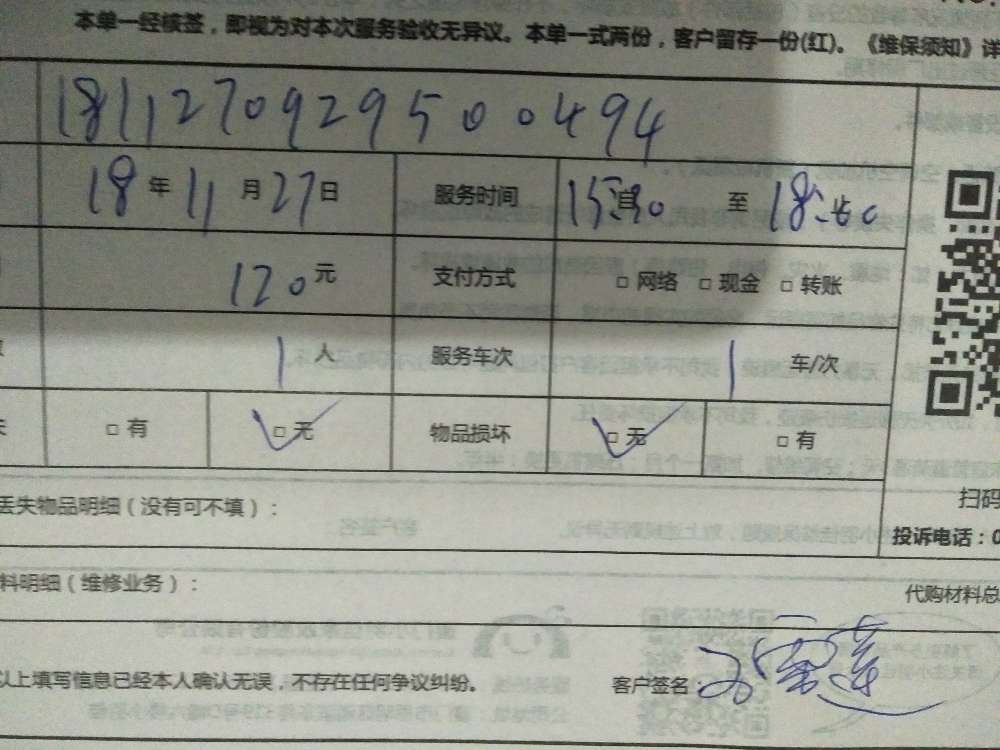 本单一经核签，即视为对本次服务验收无异议。本单一式两份，客户留存一份(红)。《维保须知》详
181127092950 0494
18年11月27日 服务时间 15:30 至 18:00
120元 支付方式 □ 网络 □ 现金 □ 转账
1人 服务车次 1 车/次
□ 有 □ 无 物品损坏 □ 无 □ 有
丢失物品明细（没有可不填）：
扫码
投诉电话：0
料明细（维修业务）：
代购材料总
以上填写信息已经本人确认无误，不存在任何争议纠纷。 客户签名